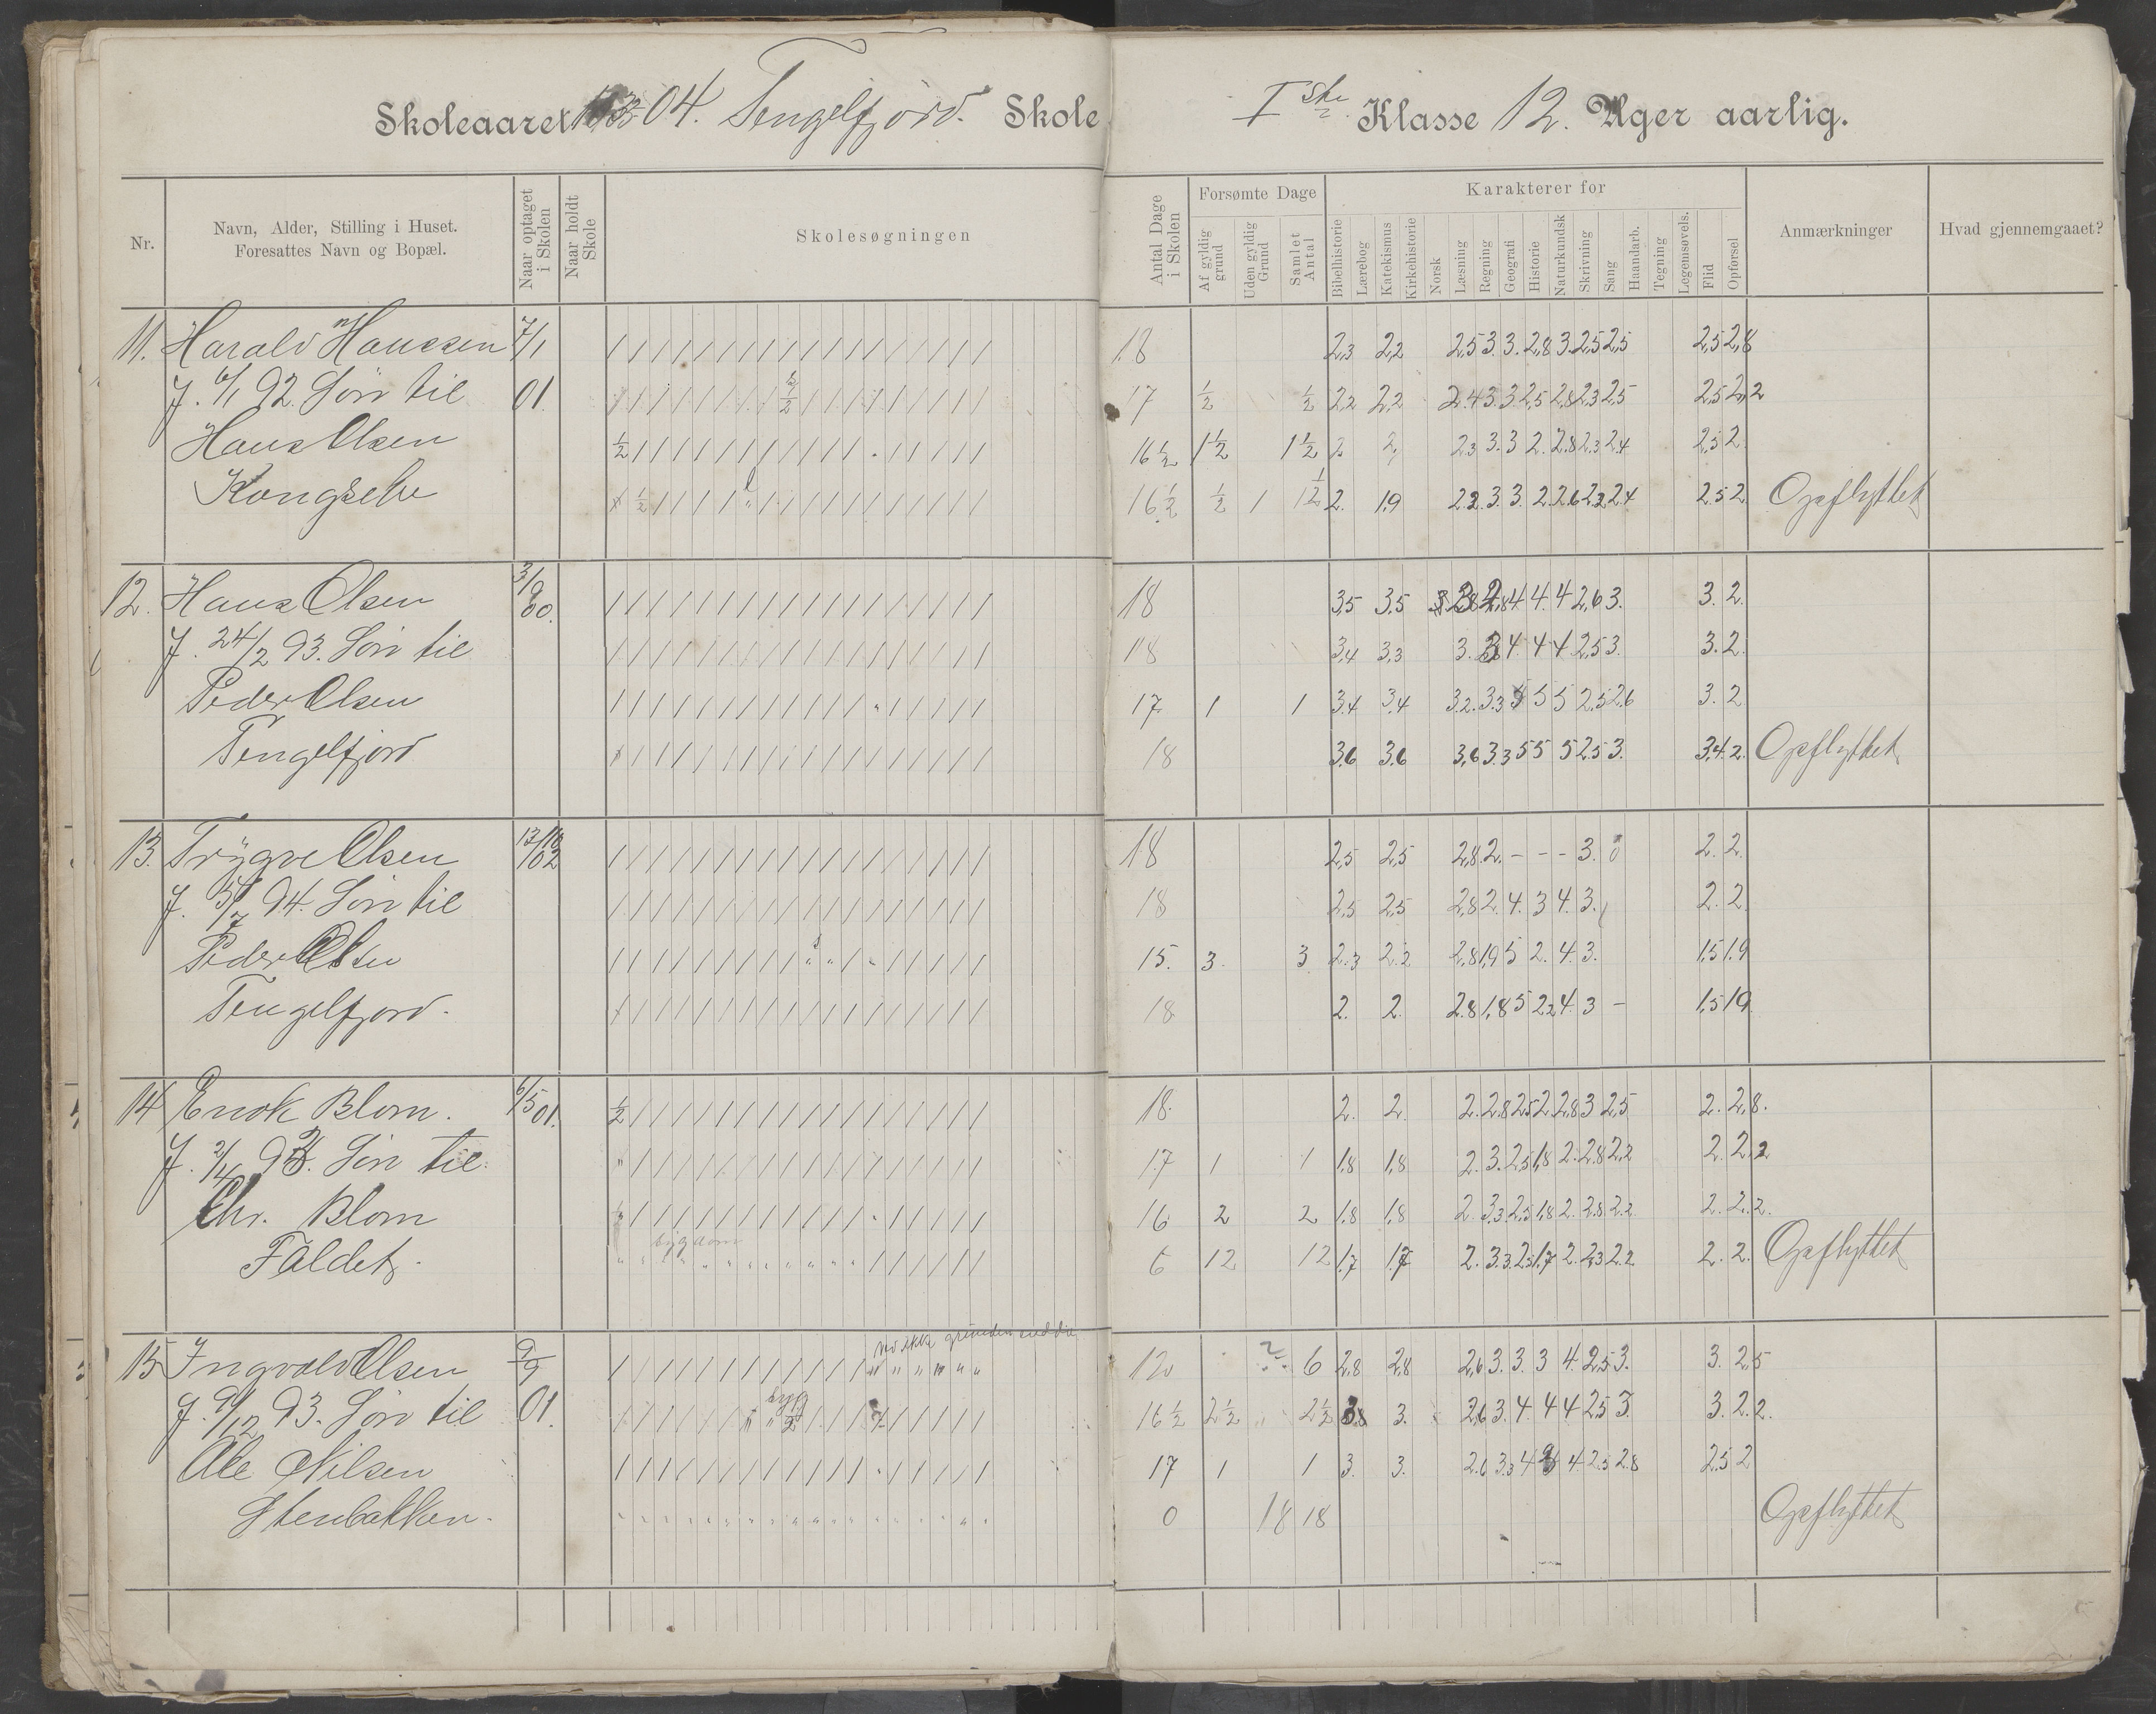 Skoleaaret 1903-04. Tengelfjord. Skole
Iste Klasse 12. Uger aarlig.
Nr.
Navn, Alder, Stilling i Huset.
Foresattes Navn og Bopæl.
Naar optaget i Skolen
Naar holdt Skole
Skolesøgningen
Antal Dage i Skolen
Forsømte Dage
Af gyldig grund
Uden gyldig Grund
Samlet Antal
Karakterer for
Bibelhistorie
Lærebog
Katekismus
Kirkehistorie
Norsk
Læsning
Regning
Geografi
Historie
Naturkundsk
Skrivning
Sang
Haandarb.
Tegning
Legemsøvels.
Flid
Opførsel
Anmærkninger
Hvad gjennemgaaet?
11. Harald Hanssen 7/1 18 2,3 2,2 2,5 3. 3. 2,8 3. 2,5 2,5 2,5 2,8
f. 6/1 92. Søn til 01. 17 1/2 1/2 2,2 2,2 2.4 3. 3. 2,5 2,8 2,3 2,5 2,5 2,2
Hans Olsen 16 1/2 1 1/2 1 1/2 2. 2. 2.3 3. 3 2. 2.8 2.3 2.4 2,5 2.
Kongselv 16 1/2 1/2 1 1 1/2 2. 1.9 2.2. 3. 3. 2. 2.6 2.2 2.4 2.5 2. Opflyttet
12. Hans Olsen 3/9 00. 18 3,5 3,5 4 4. 4 2,6 3. 3. 2.
f. 24/2 93. Søn til 18 3,4 3,3 3. 4 4 4 2,5 3. 3. 2.
Peder Olsen 17. 1 1 3.4 3.4 3.2. 3.3 5 5 2.5 2.6 3. 2
Tengelfjord 18 3.6 3.6 3,6 3.3 5 5 5 2.5 3. 3,4. 2. Opflyttet
13. Trygve Olsen 13/10 02 18 2,5 2,5 2,8. 2. - - - 3. 0 2. 2.
f. 5/7 94. Søn til 18 2,5 2,5 2,8 2. 4. 3 4. 3. 2. 2.
Peder Olsen 15. 3. 3 2.3 2.2 2,8 1,9 5 2. 4. 3. 1,5 1.9
Tengelfjord. 18 2. 2. 2.8 1,8 5 2.2 4. 3 - 1,5 1.9
14 Enok Blom. 6/5 01. 18. 2. 2. 2. 2,8 2.5 2 2,8 3 2,5 2. 2,8.
f. 2/4 Søn til 17 1 1 1,8 1,8 2. 3. 2,5 1,8 2. 2.8 2,2 2. 2,2
Chr. Blom 16 2 2 1.8 1.8 2. 3.3 2.5 1.8 2. 2.8 2.2 2. 2.2.
Faldet. 6 12 12 1.7 1.7 2. 3.3 2.5 1.7 2. 2.3 2.2 2. 2. Opflyttet
15 Ingvald Olsen 9/9 12 ? 6 2,8 2,8 2,6 3. 3. 3 4. 2,5 3. 3. 2,5
f. 9/12 93. Søn til 01. 16 1/2 2 1/2 2 1/2 3. 2,6 3. 4. 4 4 2.5 3. 3. 2.2.
Ole Nilsen 17 1 1 3. 3. 2.6 3.3 4 4 2.5 2.8 2.5 2
Stenbakken. 0 18 18 Opflyttet